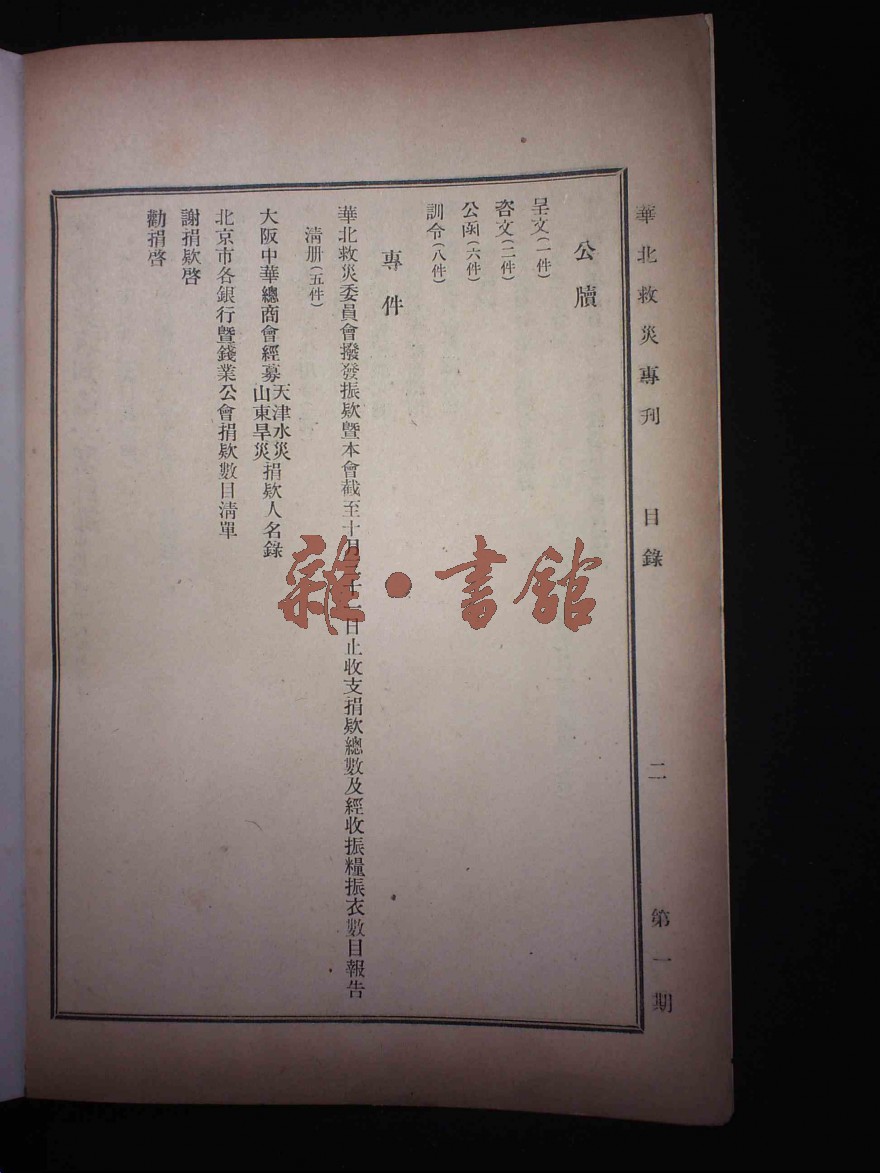 華北救災專刊 目錄 二 第一期
公牘
呈文(一件)
咨文(二件)
公函(六件)
訓令(八件)
專件
華北救災委員會撥發振欵暨本會截至十月三十一日止收支捐欵總數及經收振糧振衣數目報告
清册(五件)
大阪中華總商會經募天津水災山東旱災捐欵人名錄
北京市各銀行暨錢業公會捐欵數目清單
謝捐欵啓
勸捐啓
雜·書館